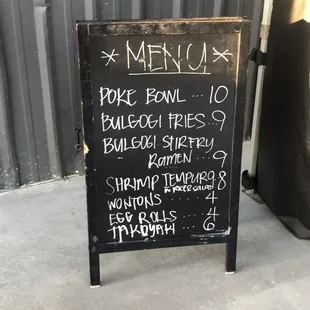 * MENU *
POKE BOWL ... 10
BULGOGI FRIES .. 9
BULGOGI STIRFRY
RAMEN ... 9
SHRIMP TEMPURA 8
WONTONS .... 4
EGG ROLLS .... 4
TAKOYAKI .... 6